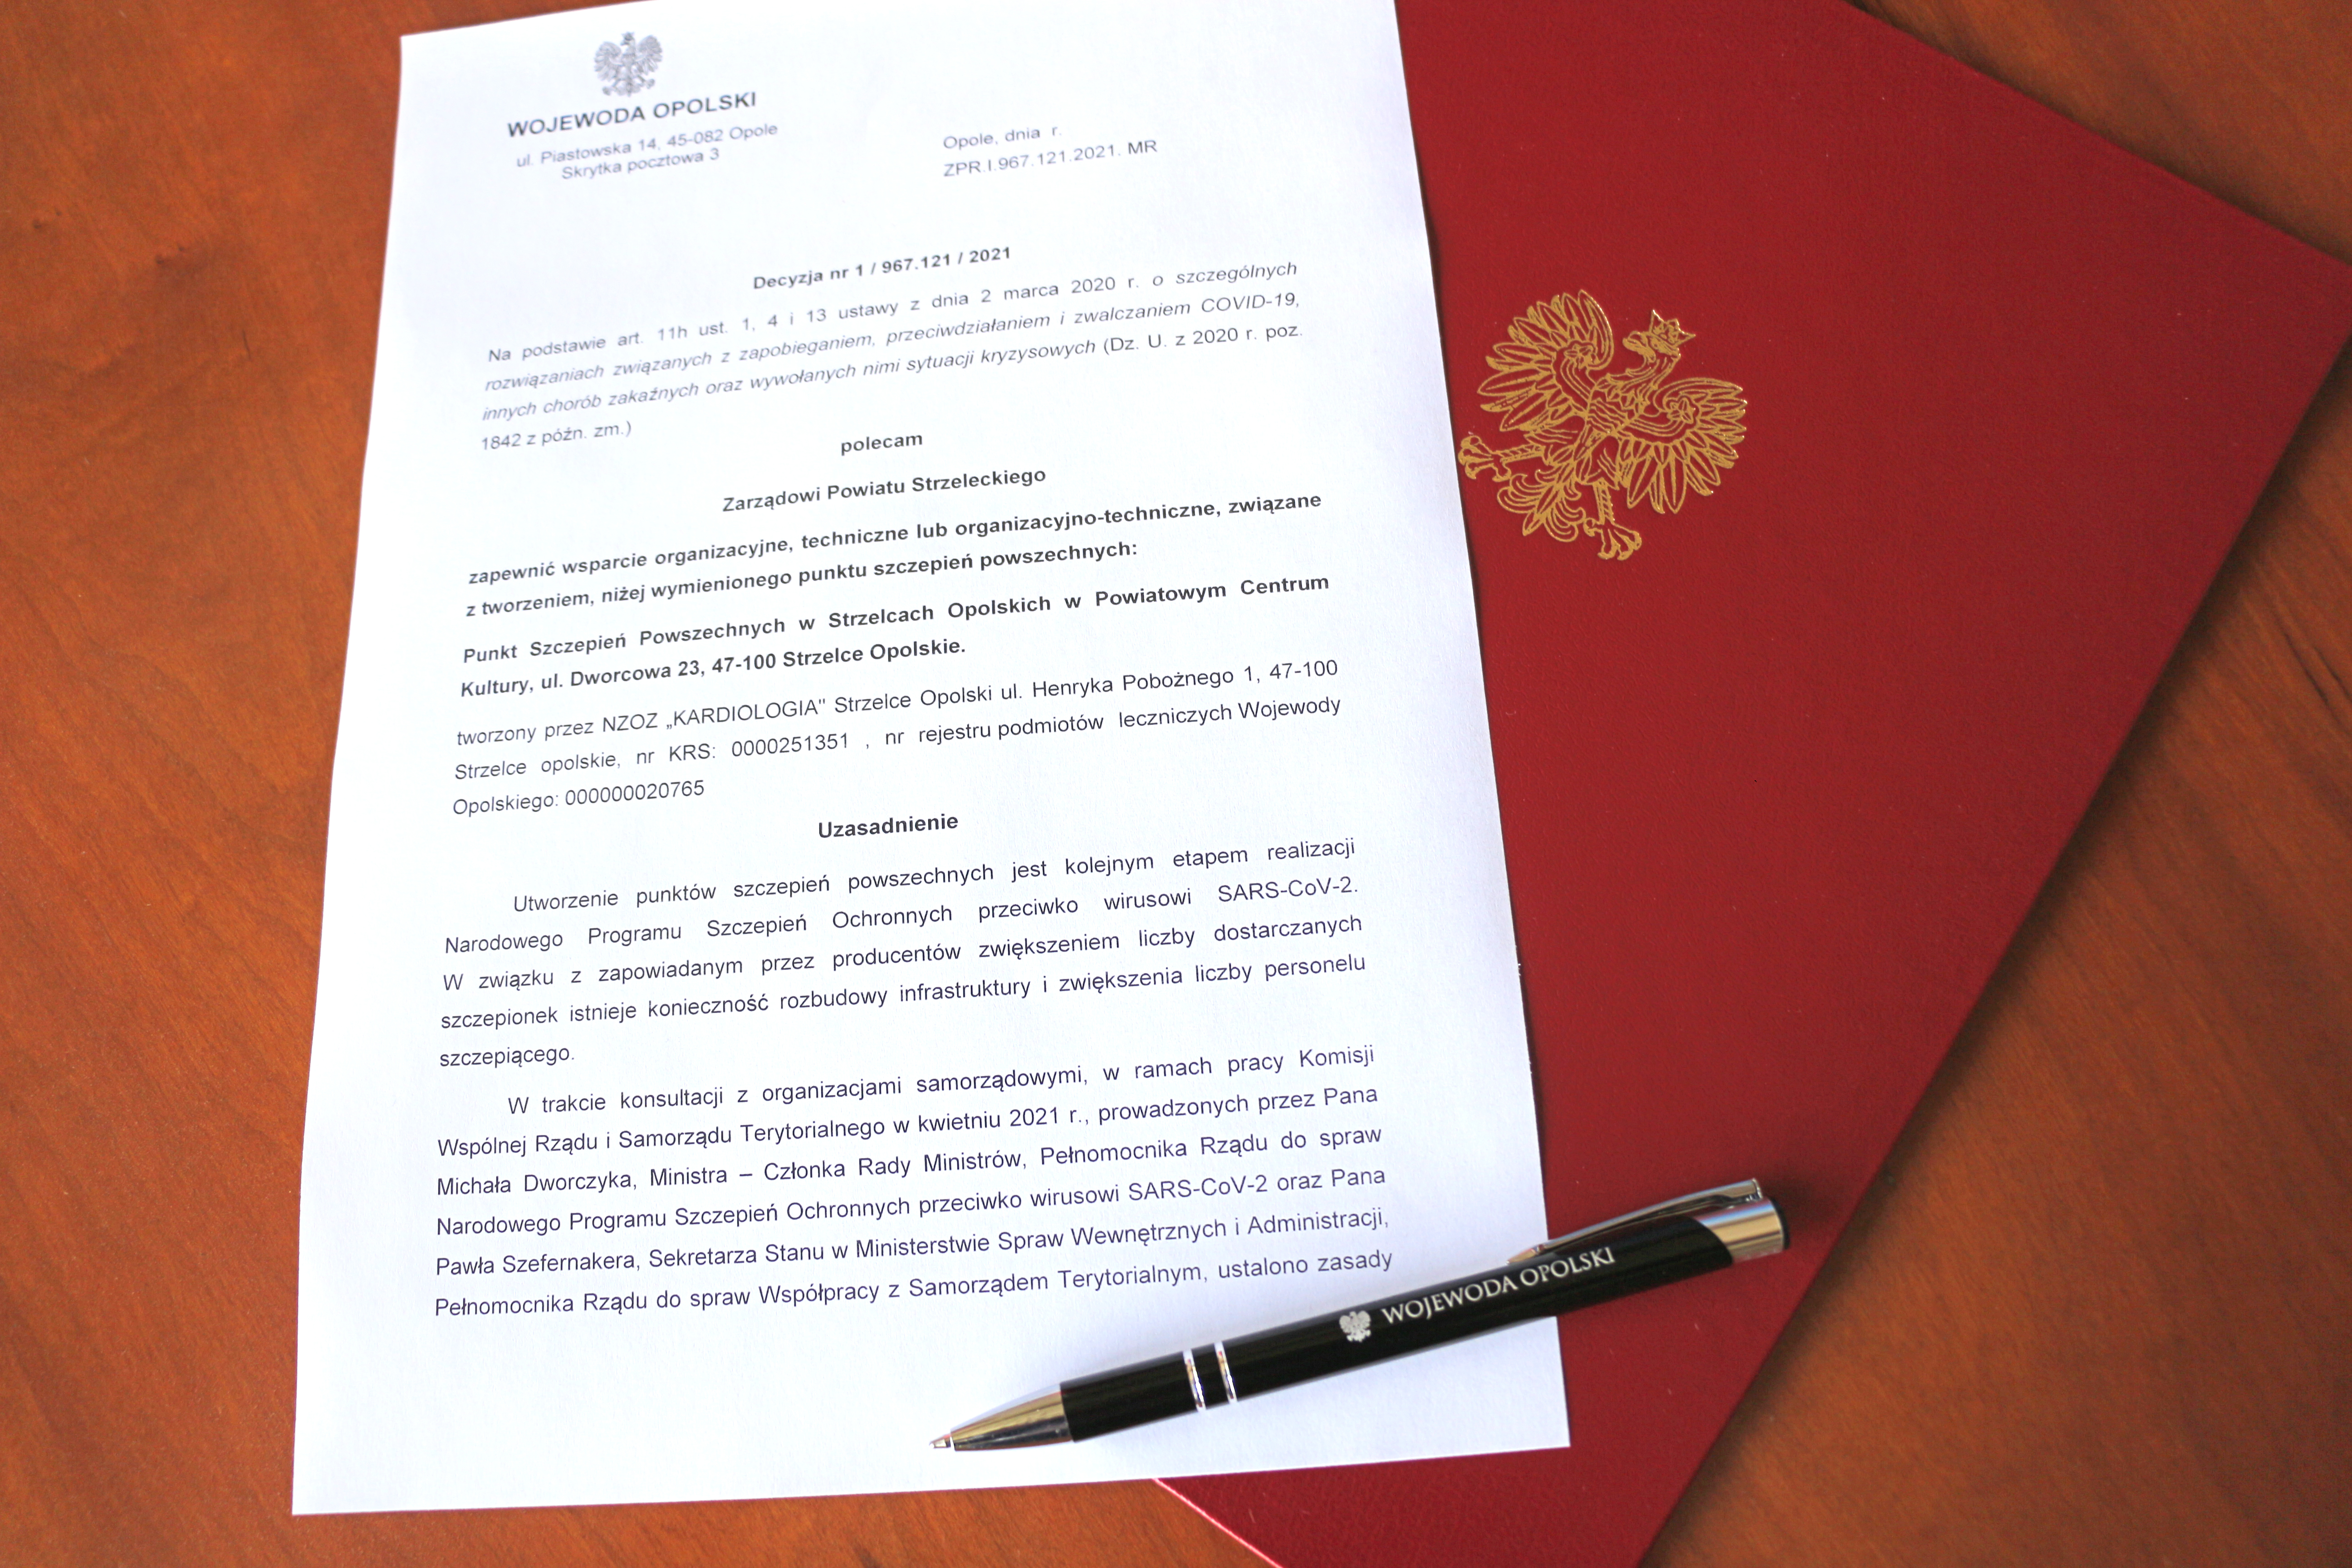 WOJEWODA OPOLSKI
ul. Piastowska 14, 45-082 Opole
Skrytka pocztowa 3
Opole, dnia r.
ZPR.I.967.121.2021. MR
Decyzja nr 1 / 967.121 / 2021
Na podstawie art. 11h ust. 1, 4 i 13 ustawy z dnia 2 marca 2020 r. o szczególnych
rozwiązaniach związanych z zapobieganiem, przeciwdziałaniem i zwalczaniem COVID-19,
innych chorób zakaźnych oraz wywołanych nimi sytuacji kryzysowych (Dz. U. z 2020 r. poz.
1842 z późn. zm.)
polecam
Zarządowi Powiatu Strzeleckiego
zapewnić wsparcie organizacyjne, techniczne lub organizacyjno-techniczne, związane
z tworzeniem, niżej wymienionego punktu szczepień powszechnych:
Punkt Szczepień Powszechnych w Strzelcach Opolskich w Powiatowym Centrum
Kultury, ul. Dworcowa 23, 47-100 Strzelce Opolskie.
tworzony przez NZOZ „KARDIOLOGIA" Strzelce Opolski ul. Henryka Pobożnego 1, 47-100
Strzelce opolskie, nr KRS: 0000251351 , nr rejestru podmiotów leczniczych Wojewody
Opolskiego: 000000020765
Uzasadnienie
Utworzenie punktów szczepień powszechnych jest kolejnym etapem realizacji
Narodowego Programu Szczepień Ochronnych przeciwko wirusowi SARS-CoV-2.
W związku z zapowiadanym przez producentów zwiększeniem liczby dostarczanych
szczepionek istnieje konieczność rozbudowy infrastruktury i zwiększenia liczby personelu
szczepiącego.
W trakcie konsultacji z organizacjami samorządowymi, w ramach pracy Komisji
Wspólnej Rządu i Samorządu Terytorialnego w kwietniu 2021 r., prowadzonych przez Pana
Michała Dworczyka, Ministra – Członka Rady Ministrów, Pełnomocnika Rządu do spraw
Narodowego Programu Szczepień Ochronnych przeciwko wirusowi SARS-CoV-2 oraz Pana
Pawła Szefernakera, Sekretarza Stanu w Ministerstwie Spraw Wewnętrznych i Administracji,
Pełnomocnika Rządu do spraw Współpracy z Samorządem Terytorialnym, ustalono zasady
WOJEWODA OPOLSKI